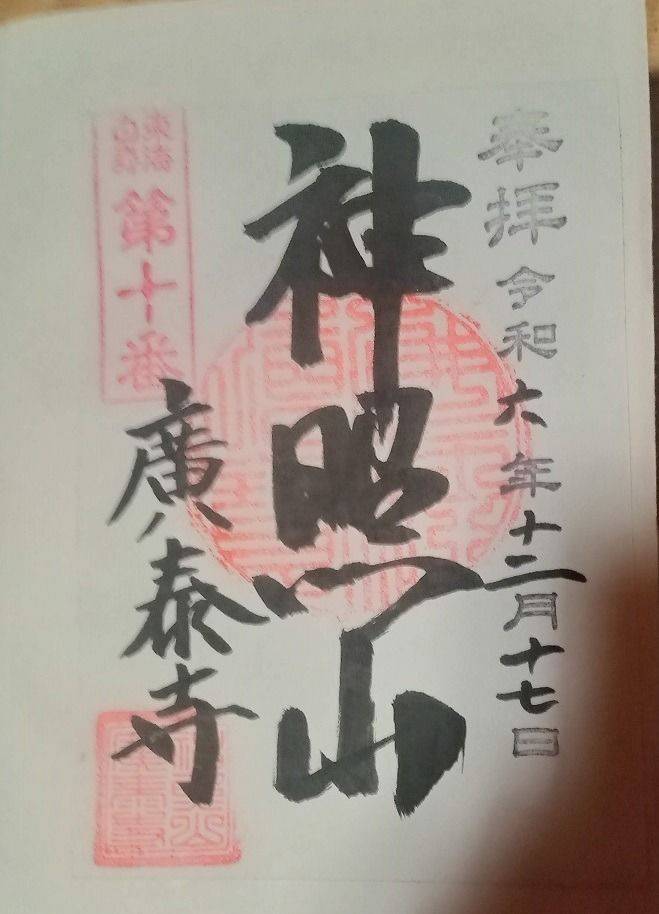 奉拝 令和六年十二月十七日
神照山
東海
白寿
第十番
廣泰寺